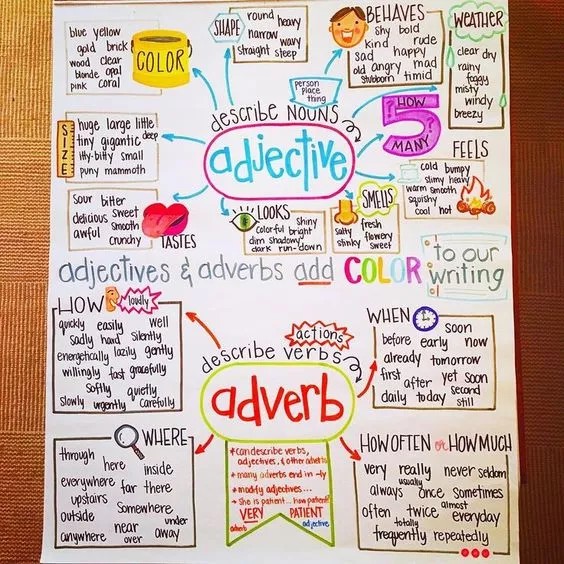 blue yellow
gold brick
wood clear
blonde opal
pink coral
COLOR
SHAPE
round heavy
narrow wavy
straight steep
BEHAVES
shy bold
kind rude
sad happy
old angry mad
stubborn timid
WEATHER
clear dry
rainy
foggy
misty
windy
breezy
person
place
thing
describe NOUNS
adjective
HOW
5
MANY
SIZE
huge large little
tiny gigantic deep
itty-bitty small
puny mammoth
FEELS
cold bumpy
slimy heavy
warm smooth
squishy
cool hot
sour bitter
delicious sweet
awful smooth
crunchy
TASTES
LOOKS
shiny
colorful bright
dim shadowy
dark run-down
SMELLS
salty fresh
flowery
stinky sweet
adjectives & adverbs add COLOR to our
writing
HOW
loudly
quickly easily well
sadly hard silently
energetically lazily gently
willingly fast gracefully
softly quietly
slowly urgently carefully
actions
describe verbs
adverb
WHEN
soon
before early now
already tomorrow
first after yet soon
daily today second
still
WHERE
through
here inside
everywhere far there
upstairs
outside somewhere
near under
anywhere over away
* can describe verbs,
adjectives, & other adverbs
* many adverbs end in -ly
* modify adjectives...
* She is patient... how patient?
VERY PATIENT
adverb adjective
HOW OFTEN or HOW MUCH
very really never seldom
usually
always once sometimes
often twice almost
totally everyday
frequently repeatedly